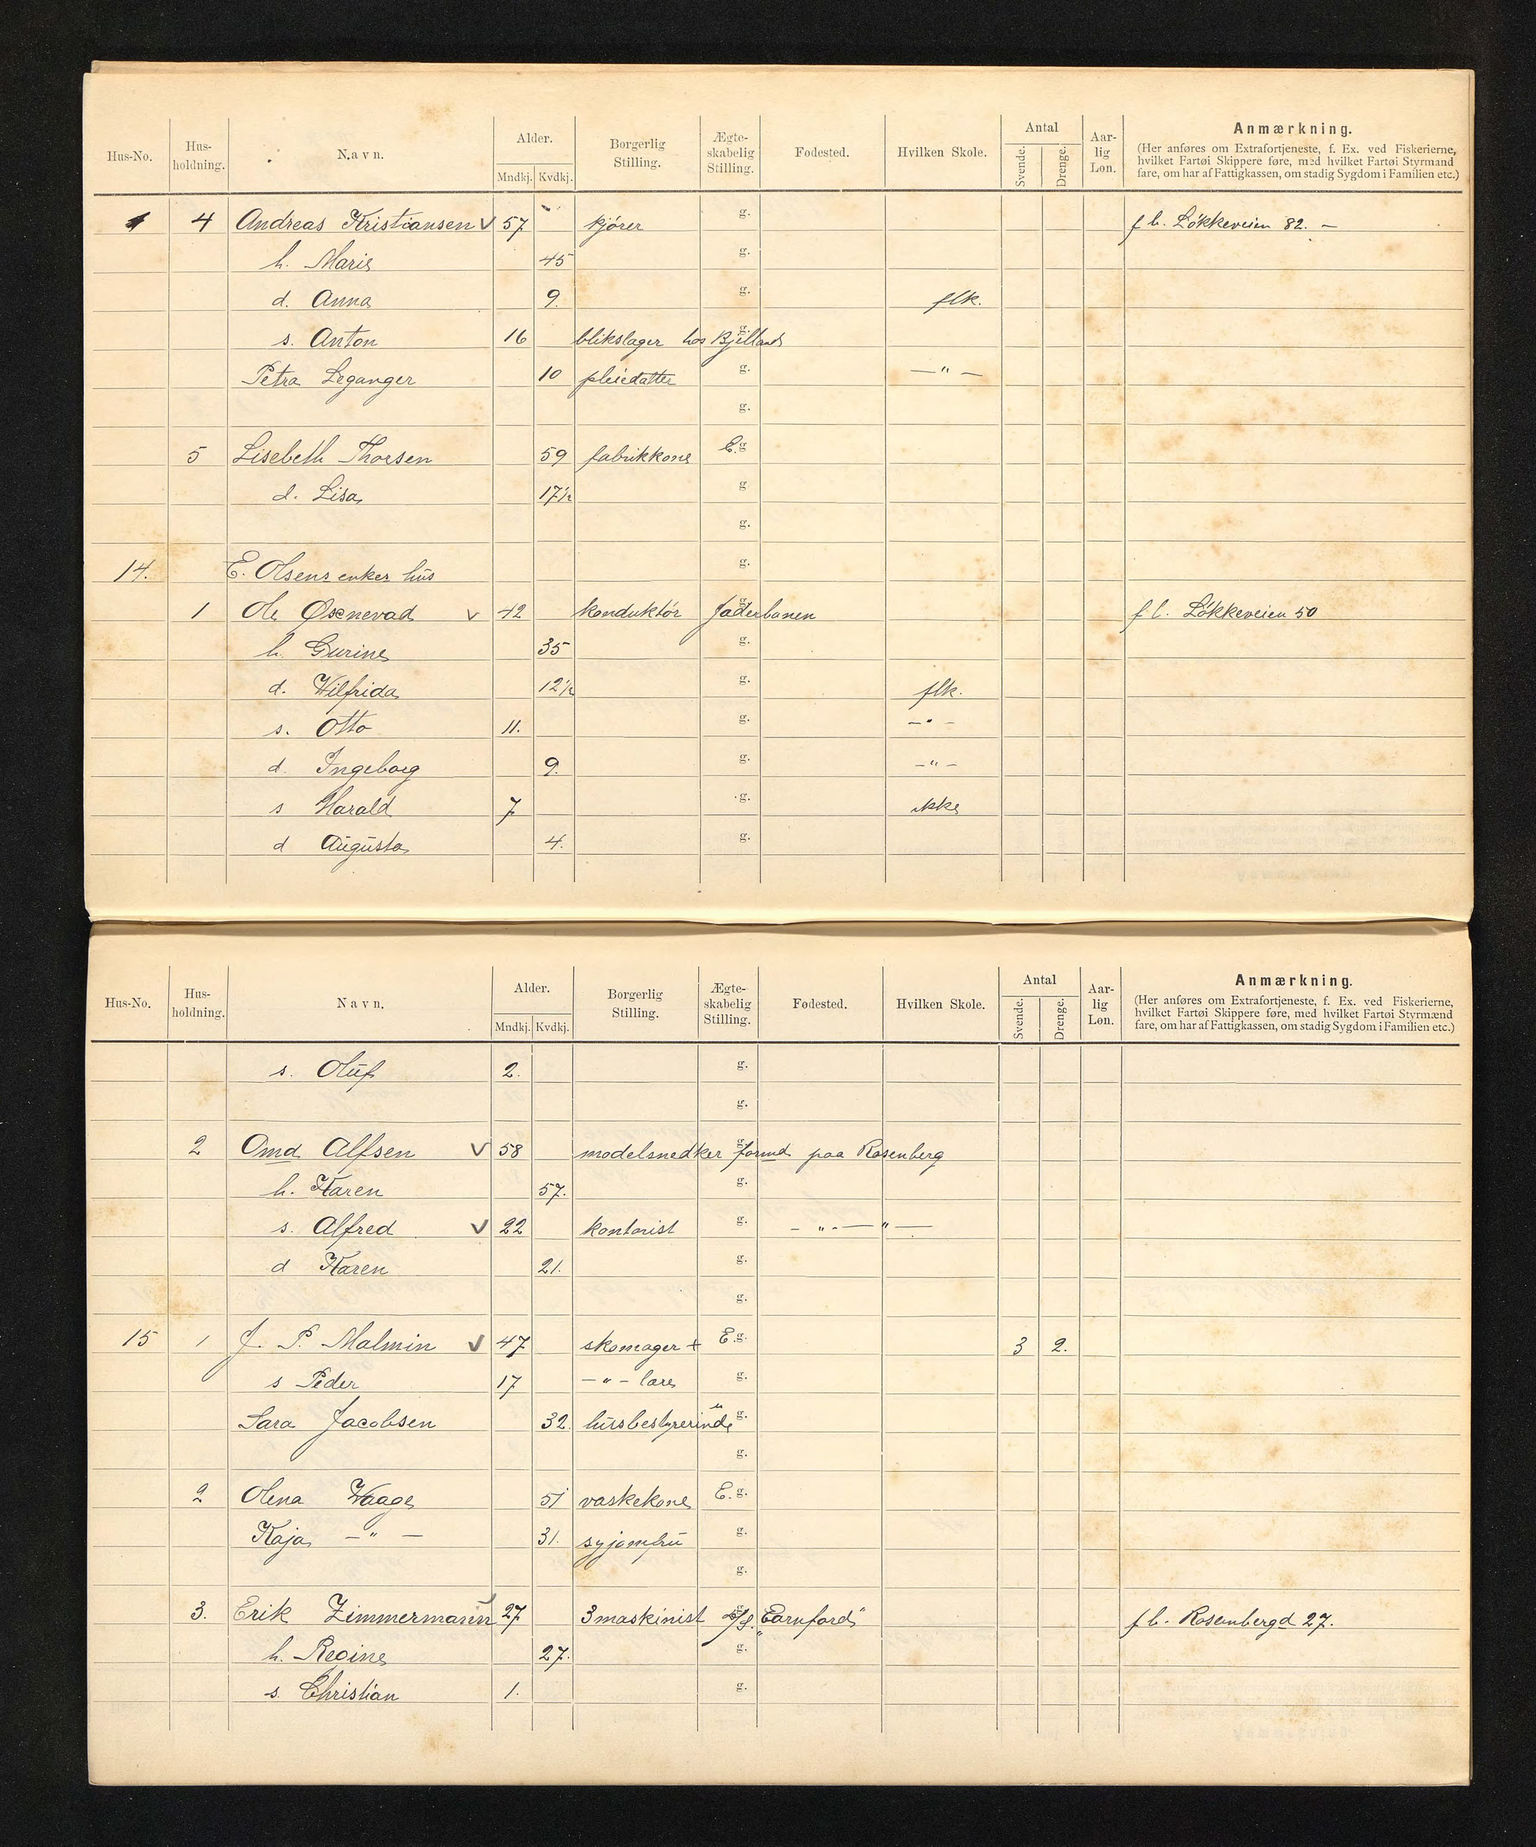 Hus-No. Hus-holdning. Navn. Alder. Mndkj. Kvdkj. Borgerlig Stilling. Ægte-skabelig Stilling. Fødested. Hvilken Skole. Antal Svende. Drenge. Aar-lig Løn. Anmærkning.
(Her anføres om Extrafortjeneste, f. Ex. ved Fiskerierne,
hvilket Fartøi Skippere føre, med hvilket Fartøi Styrmand
fare, om har af Fattigkassen, om stadig Sygdom i Familien etc.)
4 Andreas Kristiansen v 57 kjører g. f b. Løkkeveien 82. –
h. Marie 45 g.
d. Anna 9. g. flk.
s. Anton 16 blikslager hos Bjelland g.
Petra Leganger 10 pleiedatter g. — " —
g.
5 Lisebeth Thorsen 59 fabrikkone E. g
d. Lisa 17½ g
g.
14. E. Olsens enkes hus g.
1 Ole Øxnevad v 42 konduktør Jæderbanen g. f b. Løkkeveien 50
h. Gurine 35 g.
d. Wilfrida 12½ g. flk.
s. Otto 11. g. – " –
d. Ingeborg 9. g. – " –
s Harald 7 g. ikke
d Augusta 4. g.
Hus-No. Hus-holdning. Navn. Alder. Mndkj. Kvdkj. Borgerlig Stilling. Ægte-skabelig Stilling. Fødested. Hvilken Skole. Antal Svende. Drenge. Aar-lig Løn. Anmærkning.
(Her anføres om Extrafortjeneste, f. Ex. ved Fiskerierne,
hvilket Fartøi Skippere føre, med hvilket Fartøi Styrmænd
fare, om har af Fattigkassen, om stadig Sygdom i Familien etc.)
s. Oluf 2. g.
g.
2 Omd Alfsen v 58 modelsnedker formd paa Rosenberg g.
h. Karen 57. g.
s. Alfred v 22 kontorist g. – " – — " —
d Karen 21. g.
g.
15 1 J. P. Malmin v 47 skomager + E. g. 3 2.
s Peder 17 – " – lære g.
Sara Jacobsen 32 husbestyrerinde u g.
g.
2 Olena Waage 51 vaskekone E. g.
Kaja — " — 31. syjomfru g.
g.
3. Erik Zimmermann v 27 3 maskinist D/S. "Earnford" g. f b. Rosenbergd 27.
h. Regine 27. g.
s. Christian 1. g.